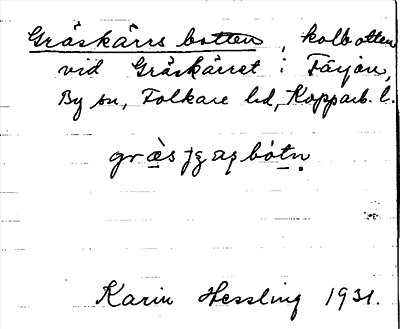 Gräskärrs botten, kolbotten
vid Gräskärret i Färjan,
By sn, Folkare hd, Kopparb. l.
Karin Hessling 1931.